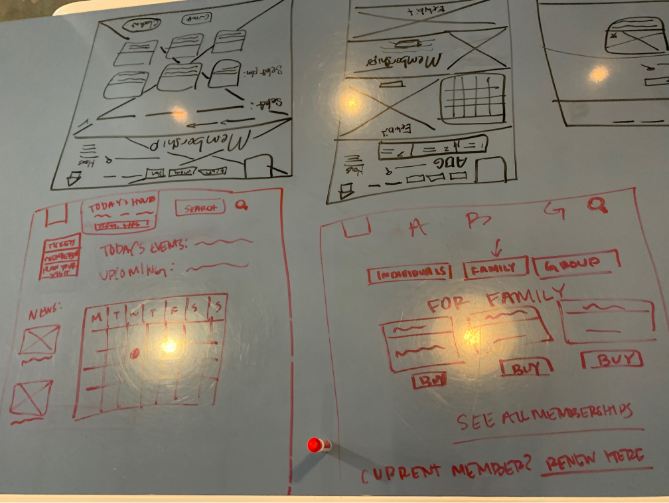 Membership
Select:
Exhibit
Memberships
Exhibit
AUG
TODAY'S HOURS
SEARCH
TICKETS
MEMBERSHIP
PLAN YOUR VISIT
TODAY'S EVENTS:
UPCOMING:
NEWS:
M T W T F S S
A B G
INDIVIDUALS FAMILY GROUP
FOR FAMILY
BUY BUY BUY
SEE ALL MEMBERSHIPS
CURRENT MEMBER? RENEW HERE